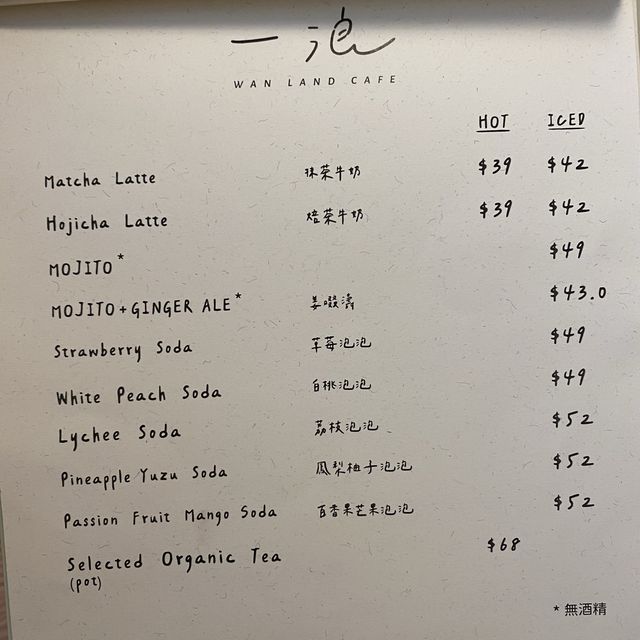 一泡
WAN LAND CAFE
HOT ICED
Matcha Latte 抹茶牛奶 $39 $42
Hojicha Latte 焙茶牛奶 $39 $42
MOJITO* $49
MOJITO + GINGER ALE* 姜啜濤 $43.0
Strawberry Soda 草莓泡泡 $49
White Peach Soda 白桃泡泡 $49
Lychee Soda 荔枝泡泡 $52
Pineapple Yuzu Soda 鳳梨柚子泡泡 $52
Passion Fruit Mango Soda 百香果芒果泡泡 $52
Selected Organic Tea $68
(pot)
* 無酒精